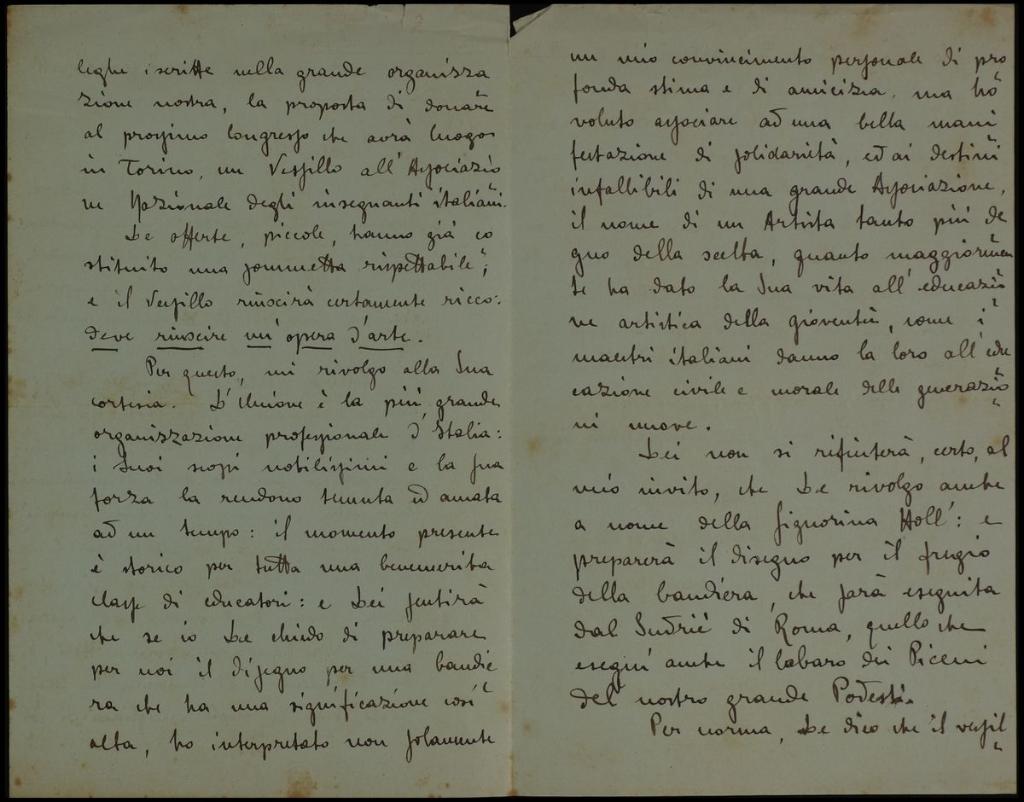 leghe iscritte nella grande organizza
zione nostra, la proposta di donare
al prossimo Congresso che avrà luogo
in Torino, un Vessillo all'Associazio
ne Nazionale degli insegnanti italiani.
Le offerte, piccole, hanno già co
stituito una sommetta rispettabile;
e il Vessillo riuscirà certamente ricco:
deve riuscire un'opera d'arte.
Per questo, mi rivolgo alla Sua
cortesia. L'Unione è la più grande
organizzazione professionale d'Italia:
i Suoi scopi nobilissimi e la sua
forza la rendono temuta ed amata
ad un tempo: il momento presente
è storico per tutta una benemerita
classe di educatori: e Lei sentirà
che se io Le chiedo di preparare
per noi il disegno per una bandie
ra che ha una significazione così
alta, ho interpretato non solamente
un mio convincimento personale di pro
fonda stima e di amicizia, ma ho
voluto associare ad una bella mani
festazione di solidarietà, ed ai destini
infallibili di una grande Associazione,
il nome di un Artista tanto più de
gno della scelta, quanto maggiormen
te ha dato la Sua vita all'educazio
ne artistica della gioventù, come i
maestri italiani danno la loro all'edu
cazione civile e morale delle generazio
ni nuove.
Lei non si rifiuterà, certo, al
mio invito, che Le rivolgo anche
a nome della Signorina Holl: e
preparerà il disegno per il fregio
della bandiera, che sarà eseguita
dal di Roma, quello che
eseguì anche il labaro dei Piceni
del nostro grande Podesti.
Per norma, Le dico che il vessil